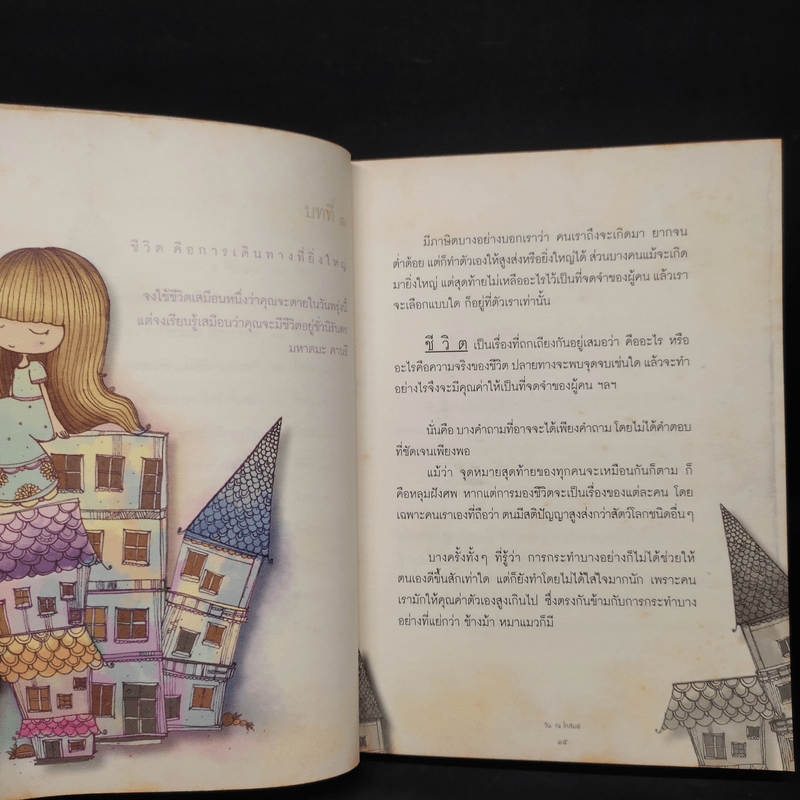 บทที่ ๑
ชีวิต คือการเดินทางที่ยิ่งใหญ่
จงใช้ชีวิตเสมือนหนึ่งว่าคุณจะตายในวันพรุ่งนี้
แต่จงเรียนรู้เสมือนว่าคุณจะมีชีวิตอยู่ชั่วนิรันดร
มหาตมะ คานธี
มีภาษิตบางอย่างบอกเราว่า คนเราถึงจะเกิดมา ยากจน
ต่ำต้อย แต่ก็ทำตัวเองให้สูงส่งหรือยิ่งใหญ่ได้ ส่วนบางคนแม้จะเกิด
มายิ่งใหญ่ แต่สุดท้ายไม่เหลืออะไรไว้เป็นที่จดจำของผู้คน แล้วเรา
จะเลือกแบบใด ก็อยู่ที่ตัวเราเท่านั้น
ชี วิ ต เป็นเรื่องที่ถกเถียงกันอยู่เสมอว่า คืออะไร หรือ
อะไรคือความจริงของชีวิต ปลายทางจะพบจุดจบเช่นใด แล้วจะทำ
อย่างไรจึงจะมีคุณค่าให้เป็นที่จดจำของผู้คน ฯลฯ
นั่นคือ บางคำถามที่อาจจะได้เพียงคำถาม โดยไม่ได้คำตอบ
ที่ชัดเจนเพียงพอ
แม้ว่า จุดหมายสุดท้ายของทุกคนจะเหมือนกันก็ตาม ก็
คือหลุมฝังศพ หากแต่การมองชีวิตจะเป็นเรื่องของแต่ละคน โดย
เฉพาะคนเราเองที่ถือว่า ตนมีสติปัญญาสูงส่งกว่าสัตว์โลกชนิดอื่นๆ
บางครั้งทั้งๆ ที่รู้ว่า การกระทำบางอย่างก็ไม่ได้ช่วยให้
ตนเองดีขึ้นสักเท่าใด แต่ก็ยังทำโดยไม่ได้ใส่ใจมากนัก เพราะคน
เรามักให้คุณค่าตัวเองสูงเกินไป ซึ่งตรงกันข้ามกับการกระทำบาง
อย่างที่แย่กว่า ช้างม้า หมาแมวก็มี
วัน ณ โกสินธ์
๑๕